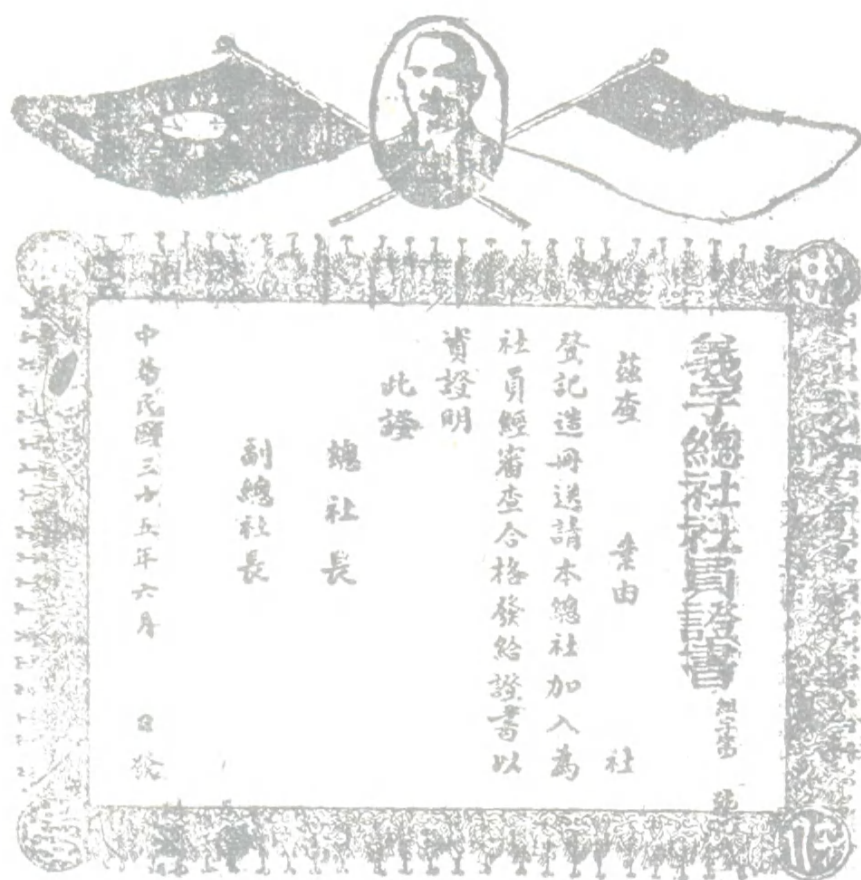 義字總社社員證書
組字第 號
茲查 業由 社
登記造冊送請本總社加入為
社員經審查合格發給證書以
資證明
此證
總社長
副總社長
中華民國三十五年六月 日發